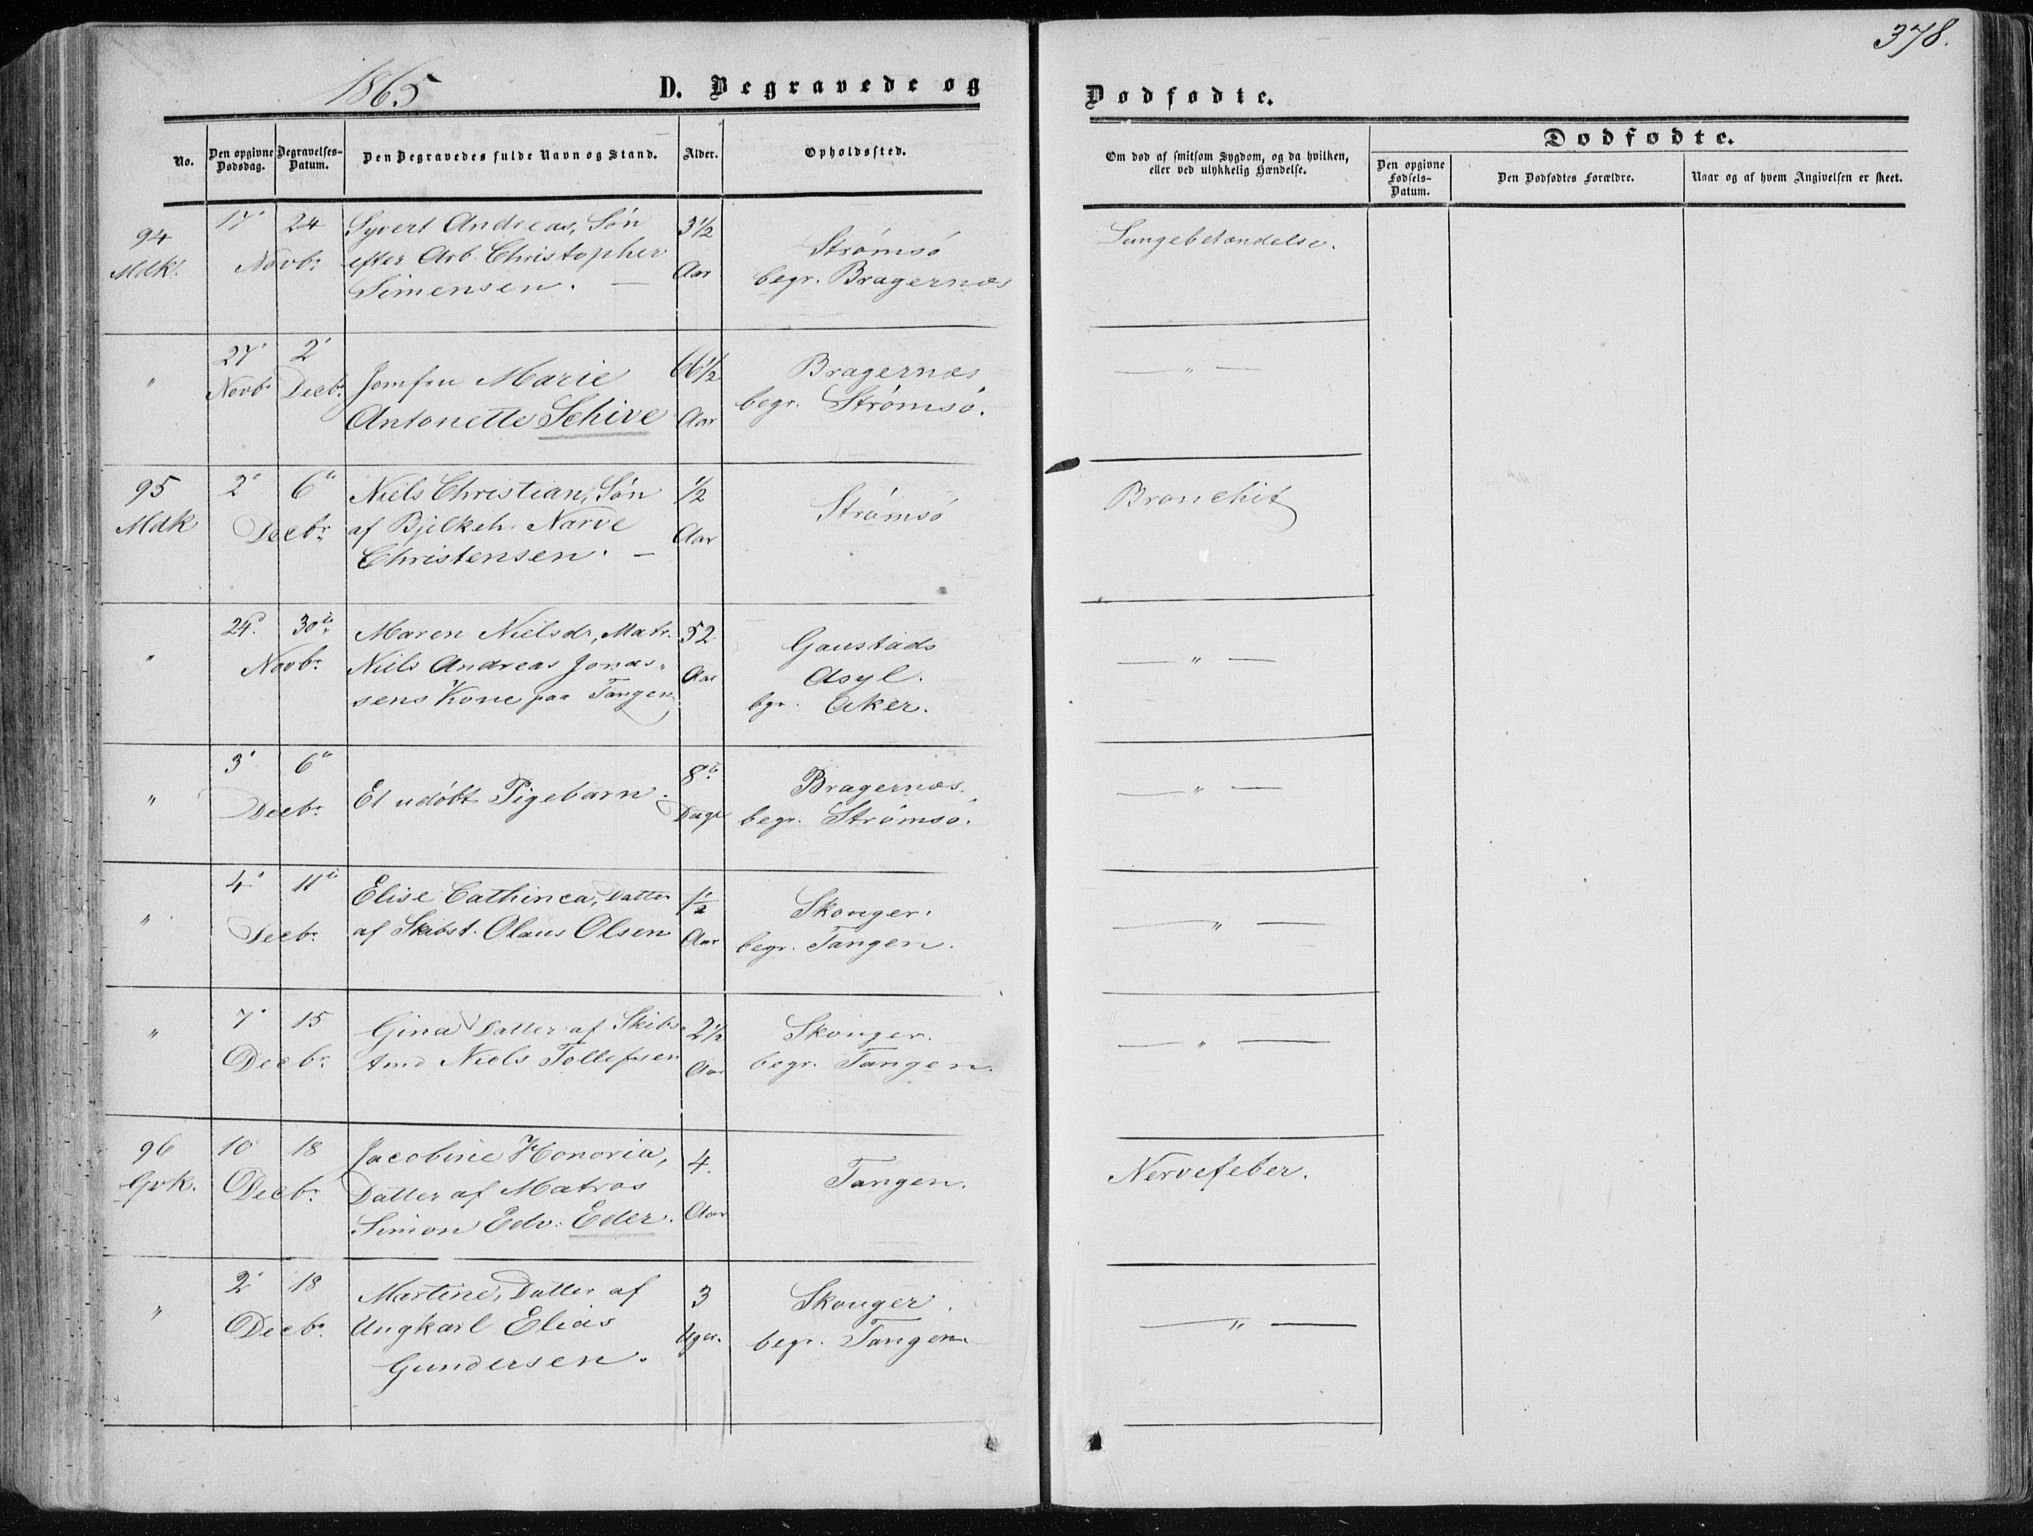 378.
1865
D. Begravede og
Dødfødte.
No.
Den opgivne Dødsdag.
Begravelses-Datum.
Den Begravedes fulde Navn og Stand.
Alder.
Opholdssted.
Om død af smitsom Sygdom, og da hvilken, eller ved ulykkelig Hændelse.
Dødfødte.
Den opgivne Fødsels-Datum.
Den Dødfødtes Forældre.
Naar og af hvem Angivelsen er skeet.
94 17' 24 Syvert Andreas, Søn 3½ Strømsö Lungebetændelse.
Mdk. Novbr efter Arb. Christopher Aar begr. Bragernæs
Simensen. —
" 27' 2' Jomfru Marie 66½ Bragernæs — " —
Novbr Decbr Antonette Schive Aar begr. Strømsö.
95 2' 6te Niels Christian, Søn ½ Strømsö Bronchit
Mdk Decbr af Bjelkeh. Narve Aar
Christensen. —
" 24. 30te Maren Nielsdr, Matr. 52 Gaustads — " —
Novbr Niels Andreas Jonas- Aar Asyl.
sens Kone paa Tangen bgr. Aker.
" 3' 6te Et udöbt Pigebarn. 8te Bragernæs. — " —
Decbr. Dage begr. Strømsö.
" 4' 11te Elise Cathinca, Datter ½ Skouger. — " —
Decbr. af Skibst. Olaus Olsen Aar begr. Tangen.
" 7' 15 Gina Datter af Skibs- 2½ Skouger. — " —
Decbr. tmd Niels Tollefsen Aar begr. Tangen.
96 10 18 Jacobine Honoria, 4. Tangen. Nervefeber.
Gvk. Decbr. Datter af Matros Aar
Simon Edv. Eder.
" 2' 18 Martine, Datter af 3 Skouger. — " —
Decbr. Ungkarl Elias Uger. begr. Tangen
Gundersen.